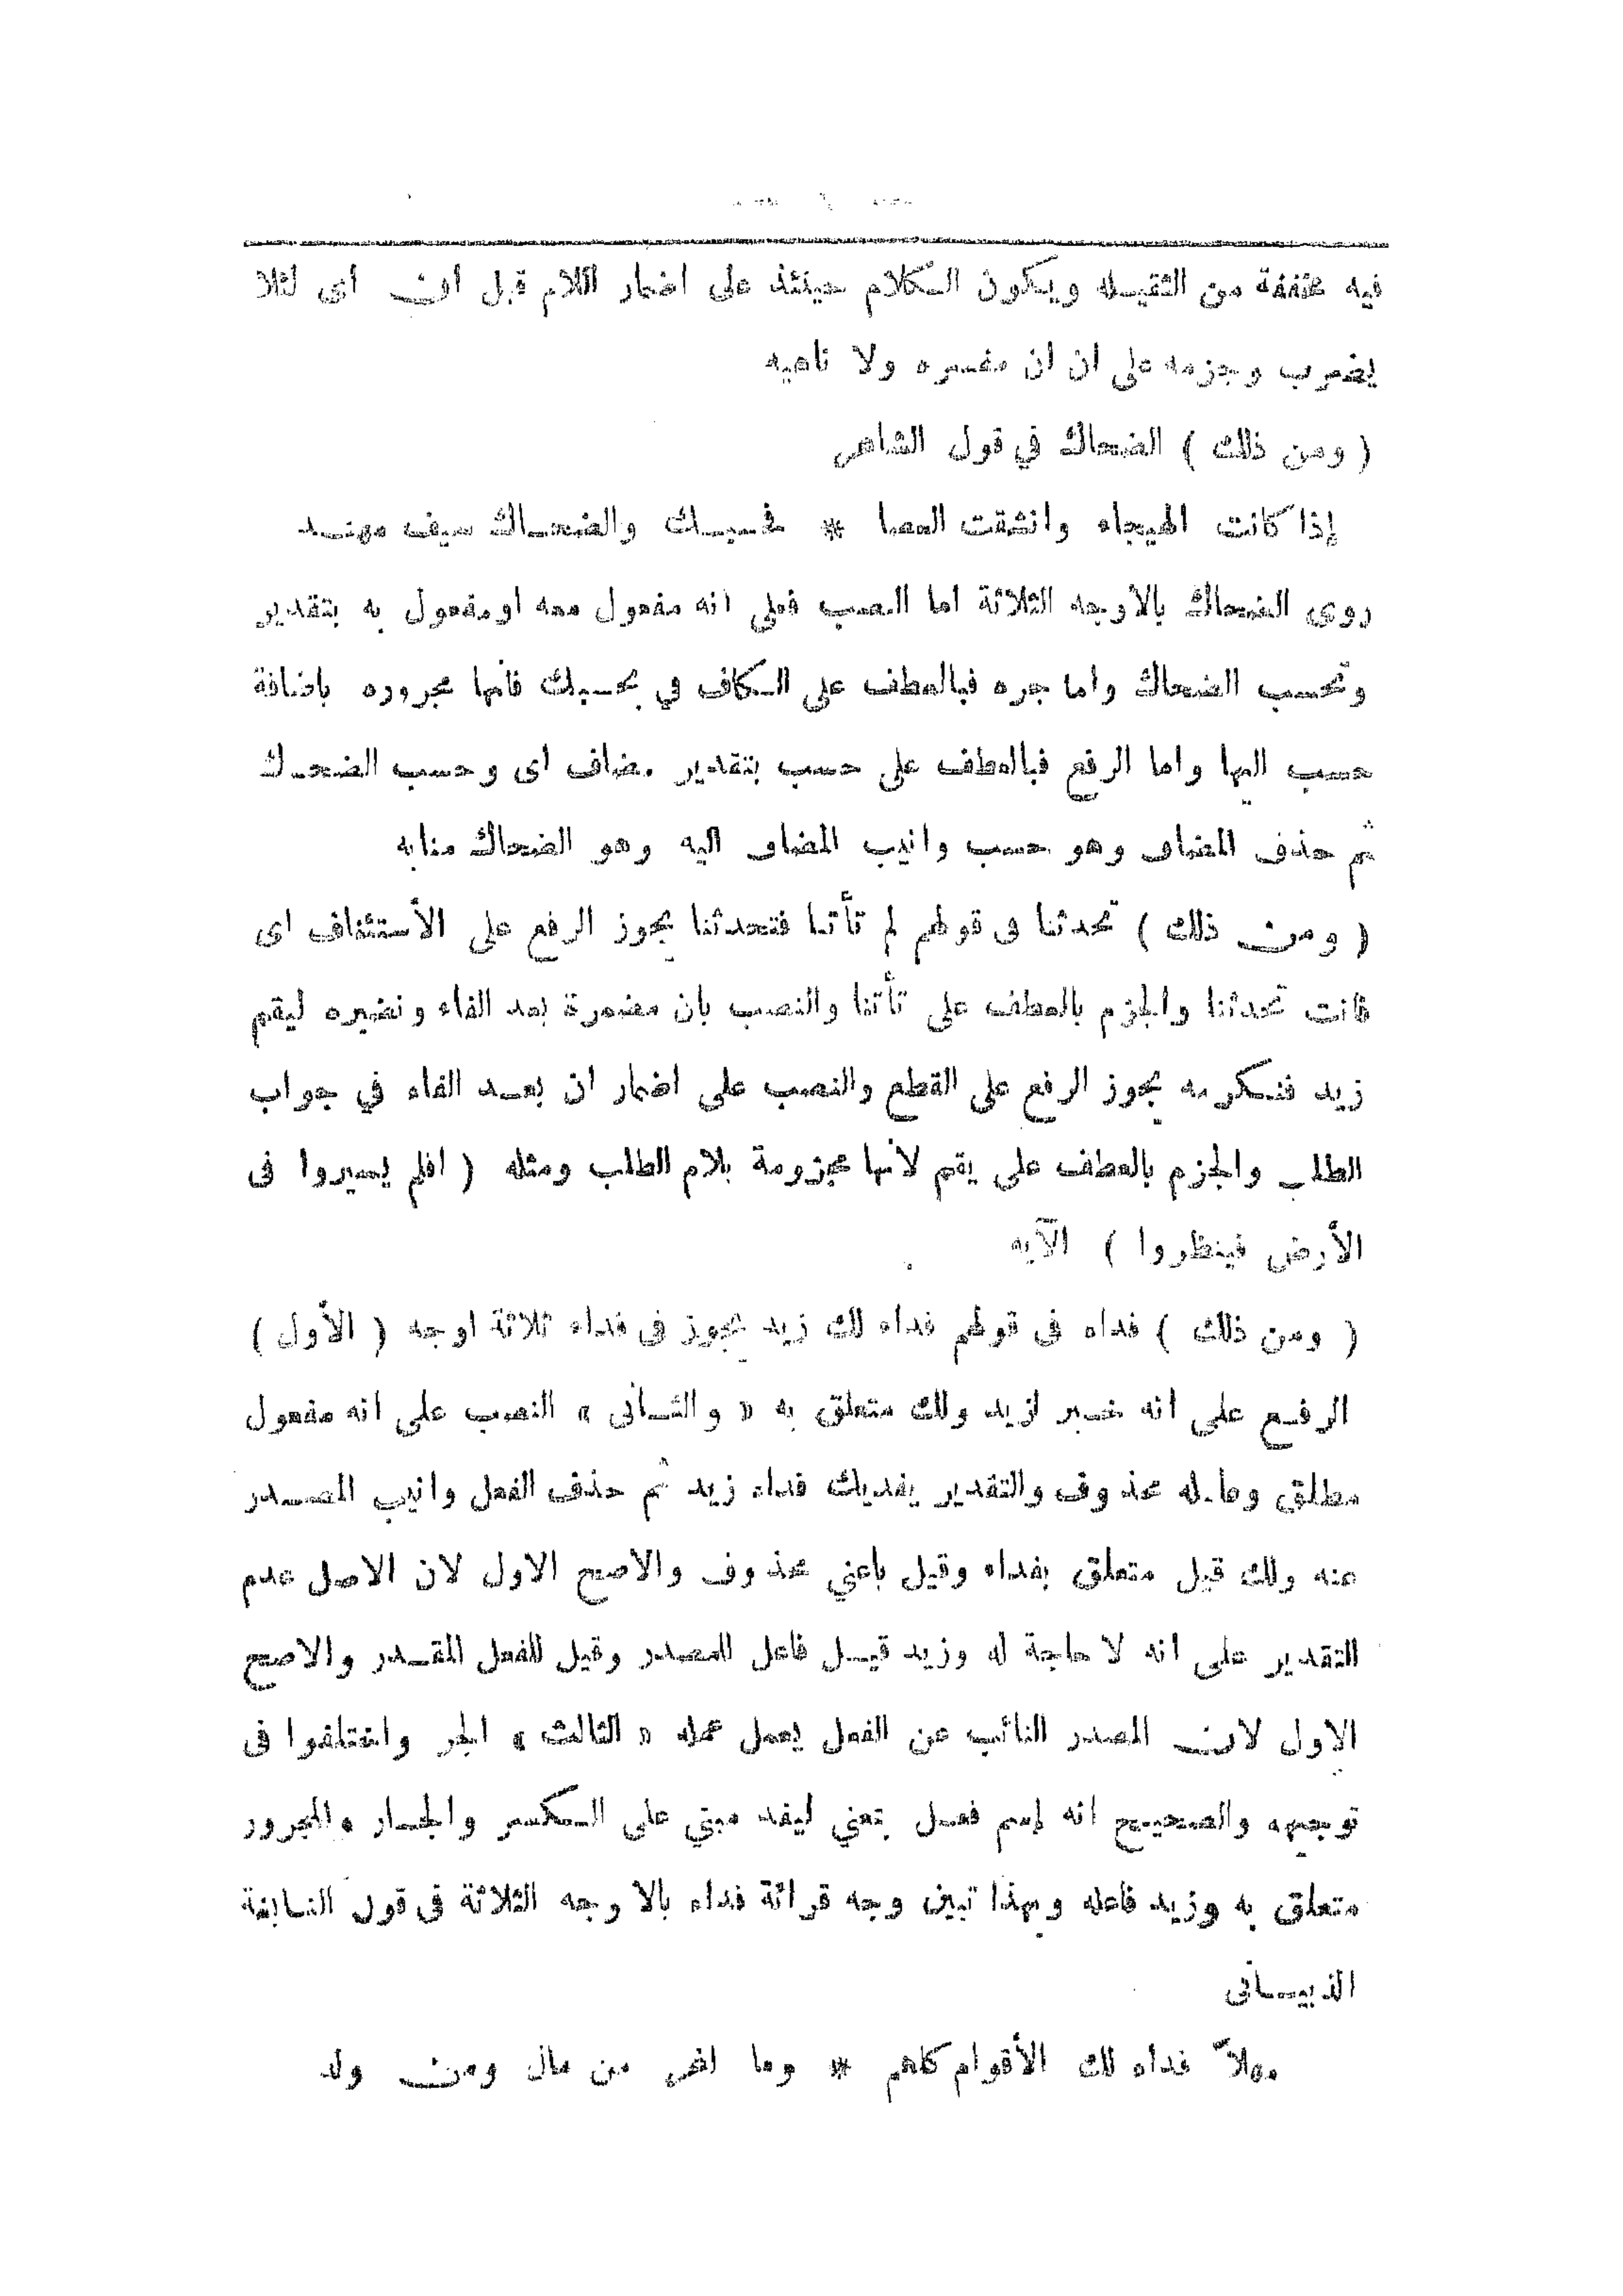 فيه مخففة من الثقيله ويكون الكلام حينئذ على اضمار اللام قبل ان اى لئلا
يضرب وجزمه على ان ان مفسره ولا ناهيه
( ومن ذلك ) الضحاك في قول الشاعر
إذا كانت الهيجاء وانشقت العصا * فحسبك والضحاك سيف مهند
روى الضحاك بالاوجه الثلاثة اما النصب فعلى انه مفعول معه او مفعول به بتقدير
وتحسب الضحاك واما جره فبالعطف على الكاف في بحسبك فانها مجروره باضافة
حسب اليها واما الرفع فبالعطف على حسب بتقدير مضاف اى وحسب الضحك
ثم حذف المضاف وهو حسب وانيب المضاف اليه وهو الضحاك منابه
( ومن ذلك ) تحدثنا فى قولهم لم تأتنا فتحدثنا يجوز الرفع على الأستئناف اى
فانت تحدثنا والجزم بالعطف على تأتنا والنصب بان مضمرة بعد الفاء ونضيره ليقم
زيد فنكرمه يجوز الرفع على القطع والنصب على اضمار ان بعد الفاء في جواب
الطلب والجزم بالعطف على يقم لانها مجزومة بلام الطلب ومثله ( افلم يسيروا فى
الأرض فينظروا ) الآيه
( ومن ذلك ) فداء فى قولهم فداء لك زيد يجوز فى فداء ثلاثة اوجه ( الأول )
الرفع على انه خبر لزيد ولك متعلق به « والثانى » النصب على انه مفعول
مطلق وعامله محذوف والتقدير يفديك فداء زيد ثم حذف الفعل وانيب المصدر
عنه ولك قيل متعلق بفداء وقيل باعني محذوف والاصح الاول لان الاصل عدم
التقدير على انه لا حاجة له وزيد قيل فاعل للمصدر وقيل للفعل المقدر والاصح
الاول لان المصدر النائب عن الفعل يعمل عمله « الثالث » الجر واختلفوا فى
توجيهه والصحيح انه إسم فعل بمعني ليفد مبني على الكسر والجار والمجرور
متعلق به وزيد فاعله وبهذا تبين وجه قرائة فداء بالاوجه الثلاثة فى قول النابغة
الذبيانى
مهلاً فداء لك الأقوام كلهم * وما اثمر من مال ومن ولد